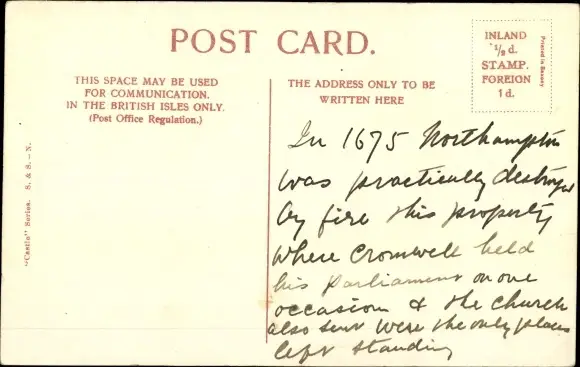 POST CARD.
THIS SPACE MAY BE USED
FOR COMMUNICATION.
IN THE BRITISH ISLES ONLY.
(Post Office Regulation.)
THE ADDRESS ONLY TO BE
WRITTEN HERE
INLAND
½d.
STAMP.
FOREIGN
1d.
Printed in Saxony
"Castle" Series. S. & S. – N.
In 1675 Northampton
was practically destroyed
by fire this property
where Cromwell held
his Parliament on one
occasion & the church
also sent were the only places
left standing